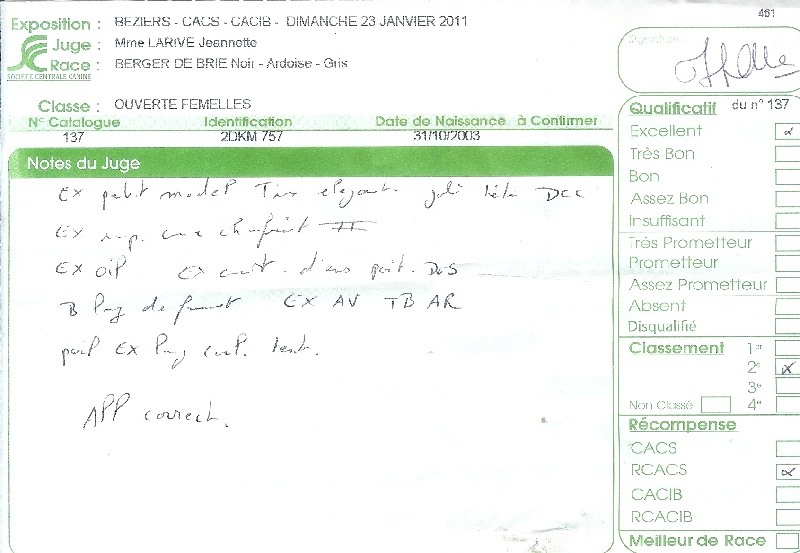 461
Exposition : BEZIERS - CACS - CACIB - DIMANCHE 23 JANVIER 2011
Juge : Mme LARIVE Jeannette
Race : BERGER DE BRIE Noir - Ardoise - Gris
SOCIÉTÉ CENTRALE CANINE
Signature
Classe : OUVERTE FEMELLES
N° Catalogue Identification Date de Naissance à Confirmer
137 2DKM 757 31/10/2003
Notes du Juge
EX petit model Très elegant joli tête
EX
EX oil EX DOS
B EX AV TB AR
poil EX
APP correct.
Qualificatif du n° 137
Excellent x
Très Bon
Bon
Assez Bon
Insuffisant
Très Prometteur
Prometteur
Assez Prometteur
Absent
Disqualifié
Classement 1er
2e x
3e
Non Classé 4e
Récompense
CACS
RCACS x
CACIB
RCACIB
Meilleur de Race